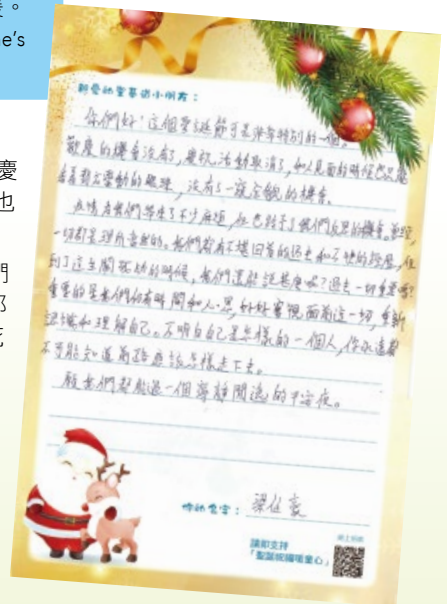 ne's
慶
也
們
親愛的聖基道小朋友：
你們好！這個聖誕節可是非常特別的一個。
歡慶的機會沒有了，慶祝活動取消了，和人見面的時候也只能
看着對方靈動的眼珠，沒有了一窺全貌的機會。
疫情為我們帶來了不少麻煩，但也給予了我們反思的機會。
一切都是理所當然的。我們都有不堪回首的過去和不快的經歷，但
到了這生關死劫的時候，我們還能說甚麼呢？過去一切重要嗎？
重要的是我們仍有時間和人、好好審視面前這一切，重新
認識和理解自己。不明白自己是怎樣的一個人，你永遠都
不可能知道前路應該怎樣走下去。
願我們都能過一個寧靜閒逸的平安夜。
你的名字：梁仕豪
請即支持
「聖誕祝福暖童心」
網上捐款